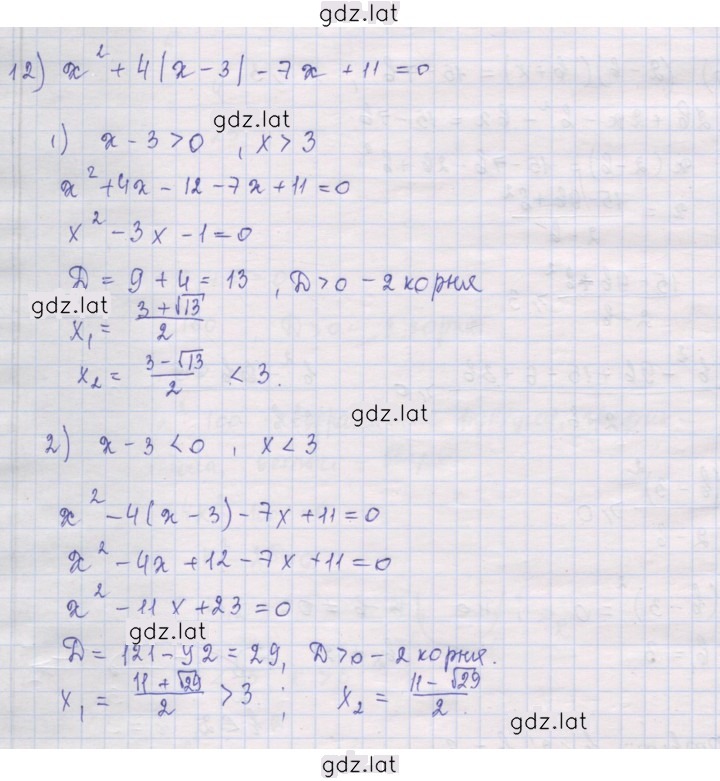 gdz.lat
12) x² + 4|x - 3| - 7x + 11 = 0
gdz.lat
1) x - 3 > 0 , x > 3
x² + 4x - 12 - 7x + 11 = 0
x² - 3x - 1 = 0
D = 9 + 4 = 13 , D > 0 - 2 корня
gdz.lat
x₁ = (3 + √13)/2
x₂ = (3 - √13)/2 < 3.
gdz.lat
2) x - 3 < 0 , x < 3
x² - 4(x - 3) - 7x + 11 = 0
x² - 4x + 12 - 7x + 11 = 0
x² - 11x + 23 = 0
gdz.lat
D = 121 - 92 = 29, D > 0 - 2 корня.
x₁ = (11 + √29)/2 > 3 ; x₂ = (11 - √29)/2.
gdz.lat
gdz.lat